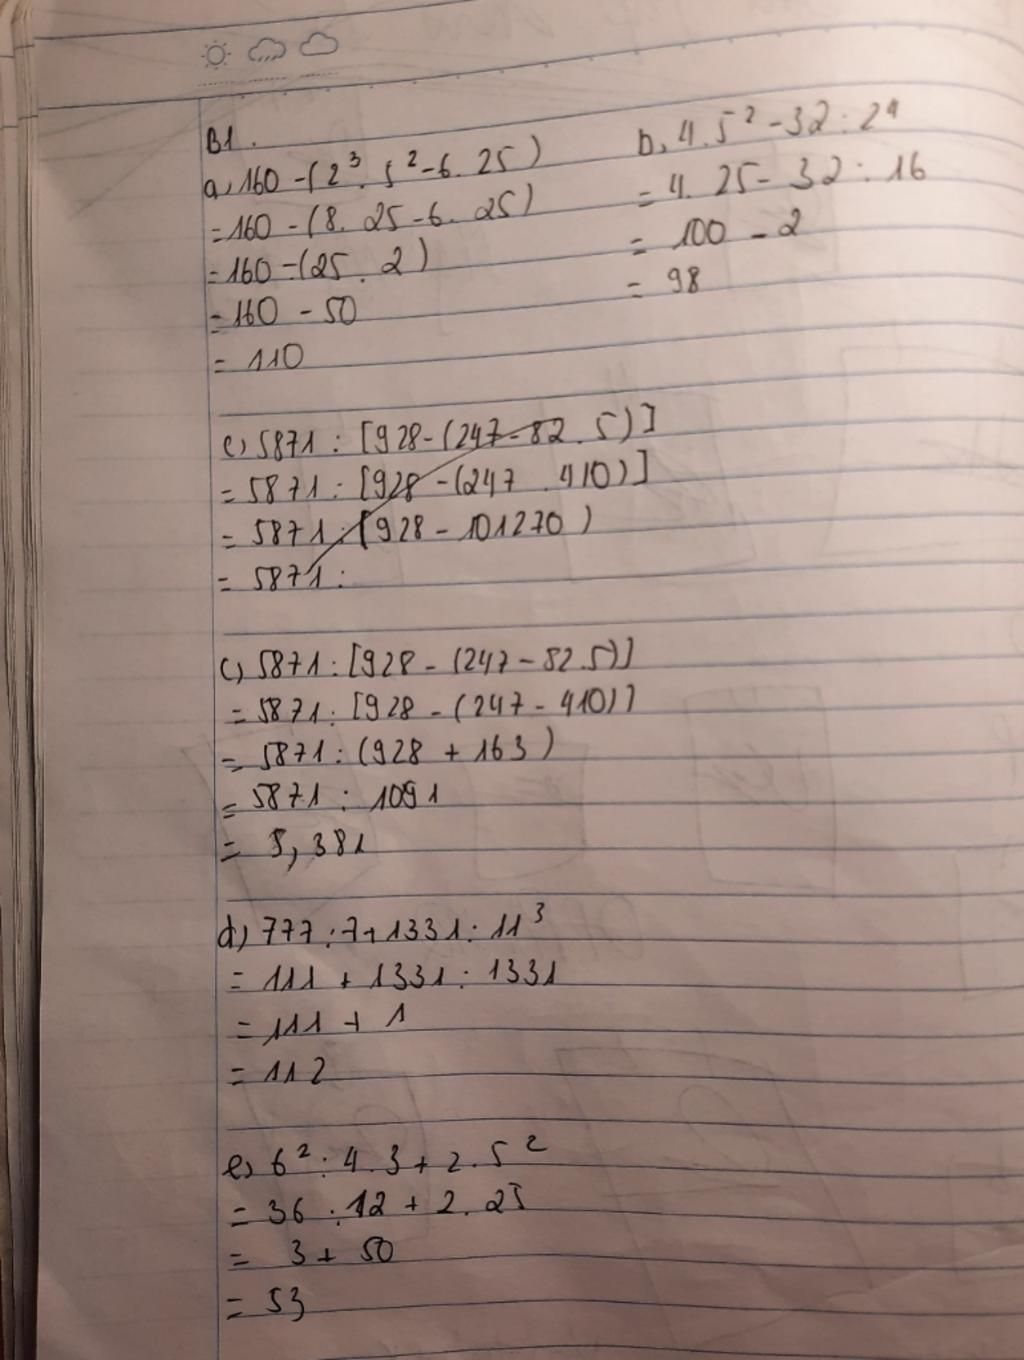 B1.
a, 160 - (2³ . 5² - 6 . 25)
= 160 - (8 . 25 - 6 . 25)
= 160 - (25 . 2)
= 160 - 50
= 110
b, 4 . 5² - 32 : 2⁴
= 4 . 25 - 32 : 16
= 100 - 2
= 98
c) 5871 : [928 - (247 - 82 . 5)]
= 5871 : [928 - (247 . 410)]
= 5871 : (928 - 101270)
= 5871 :
c) 5871 : [928 - (247 - 82 . 5)]
= 5871 : [928 - (247 - 410)]
= 5871 : (928 + 163)
= 5871 : 1091
= 5,381
d) 777 : 7 + 1331 : 11³
= 111 + 1331 : 1331
= 111 + 1
= 112
e) 6² : 4 . 3 + 2 . 5²
= 36 : 12 + 2 . 25
= 3 + 50
= 53